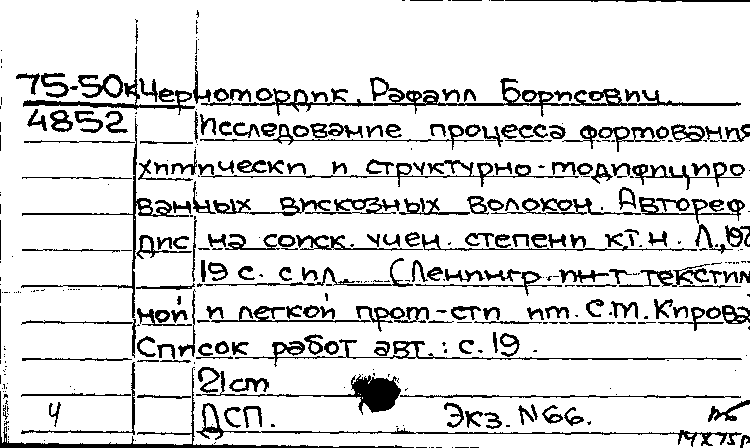 75-50к Черномордик, Рафаил Борисович.
4852 Исследование процесса формования
химически и структурно-модифициро
ванных вискозных волокон. Автореф.
дис. на соиск. учен. степени к.т.н. Л.,
19 с. с ил. (Ленингр. ин-т текстил
ной и легкой пром-сти им. С.М. Кирова
Список работ авт.: с. 19.
21 см
4 ДСП. Экз. N 66.